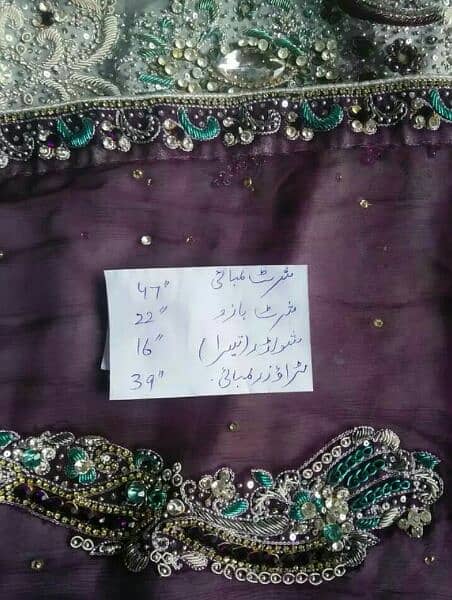 شرٹ لمبائی 47"
شرٹ بازو 22"
شولڈر (تیرا) 16"
ٹراؤزر لمبائی. 39"